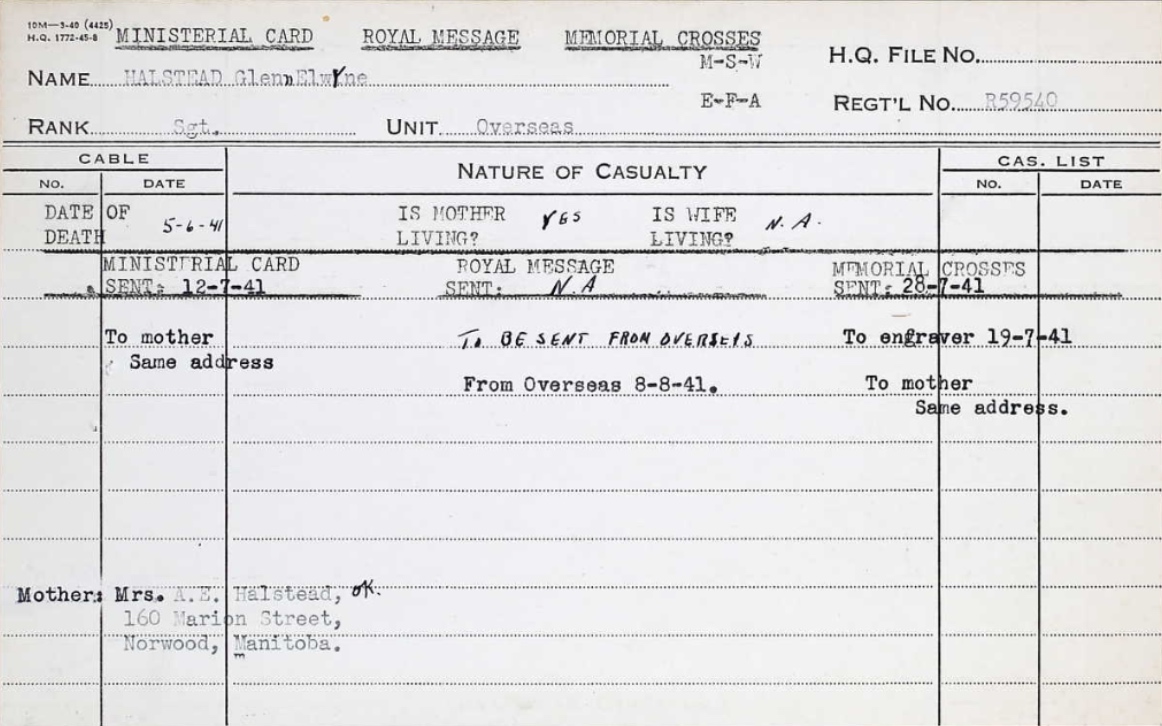 10M—3-40 (4425)
H.Q. 1772-45-8
MINISTERIAL CARD ROYAL MESSAGE MEMORIAL CROSSES
M-S-W
H.Q. FILE NO.
NAME HALSTEAD Glenn Elwyne
E-F-A
REGT'L NO. R59540
RANK Sgt. UNIT Overseas
CABLE NATURE OF CASUALTY CAS. LIST
NO. DATE NO. DATE
DATE OF DEATH 5-6-41 IS MOTHER LIVING? YES IS WIFE LIVING? N.A.
MINISTERIAL CARD ROYAL MESSAGE MEMORIAL CROSSES
SENT: 12-7-41 SENT: N.A SENT: 28-7-41
To mother TO BE SENT FROM OVERSEAS To engraver 19-7-41
Same address
From Overseas 8-8-41. To mother
Same address.
Mother: Mrs. A.E. Halstead, OK.
160 Marion Street,
Norwood, Manitoba.